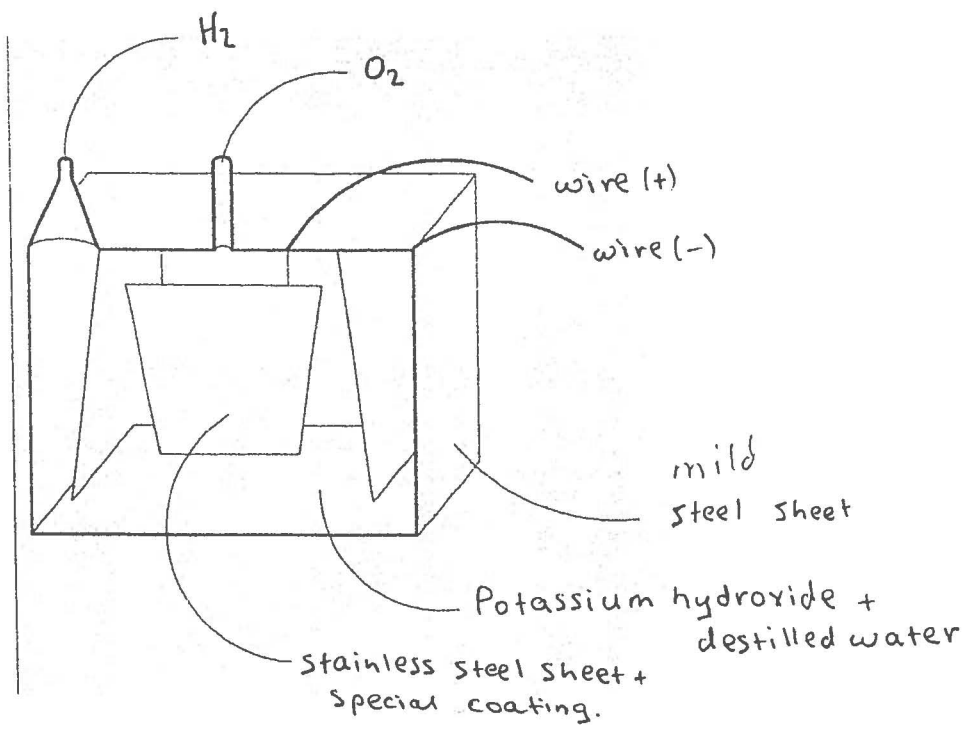 H2
O2
wire (+)
wire (-)
mild
steel sheet
Potassium hydroxide +
destilled water
stainless steel sheet +
special coating.